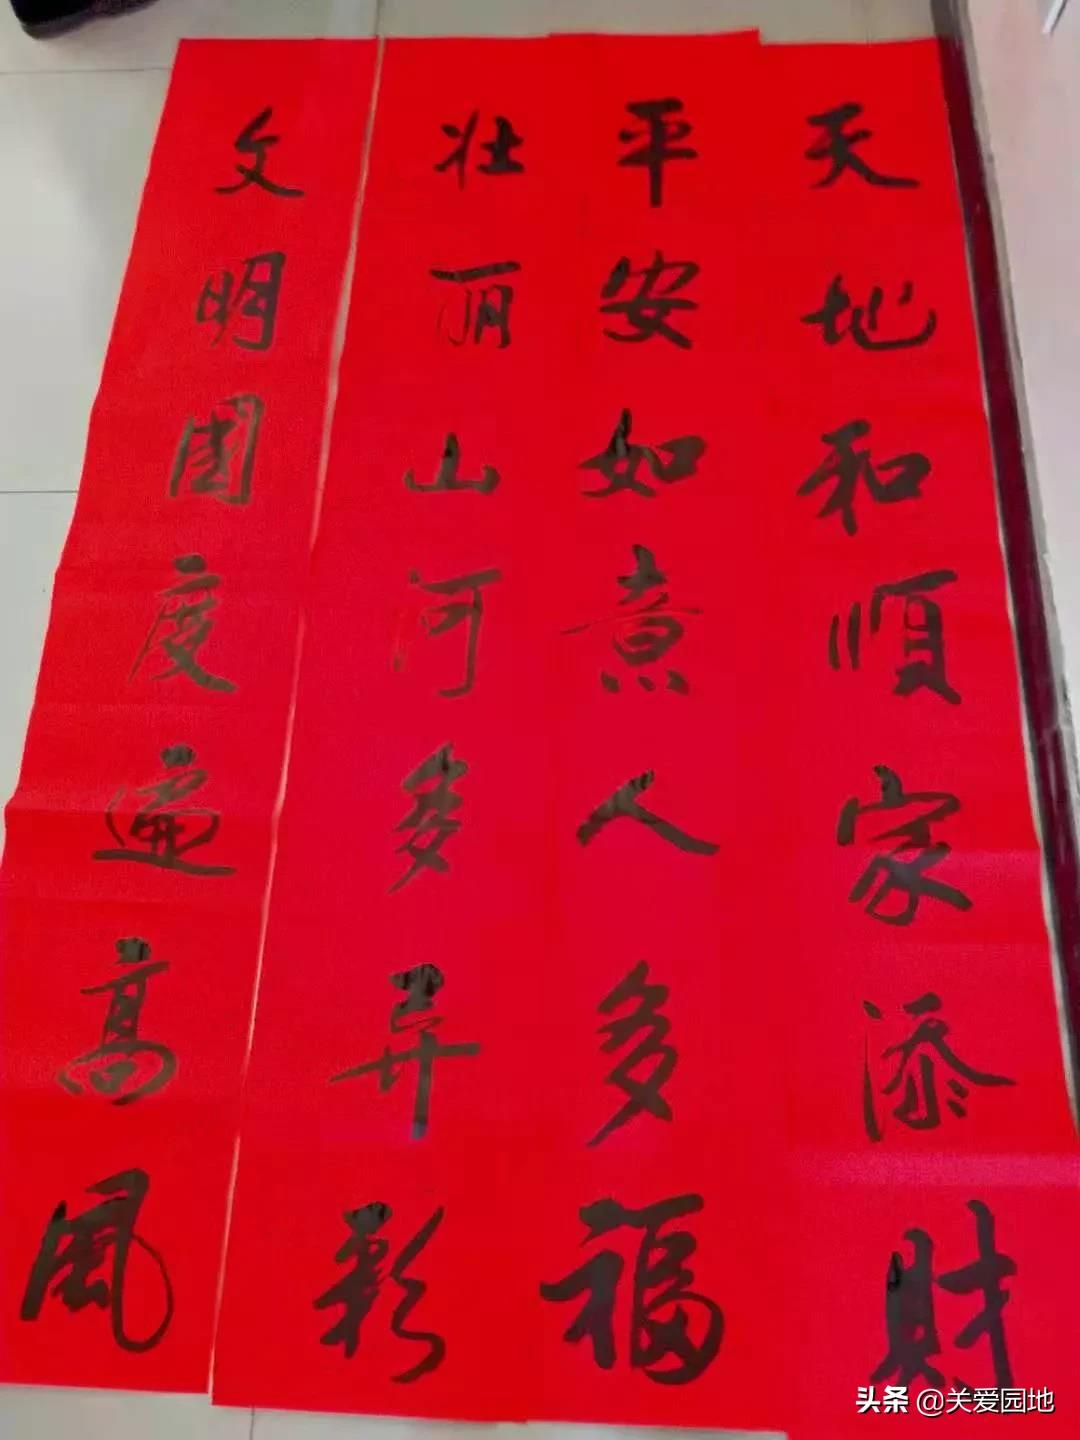 天地和順家添財
平安如意人多福
壮丽山河多异彩
文明国度遍高风
头条 @关爱园地